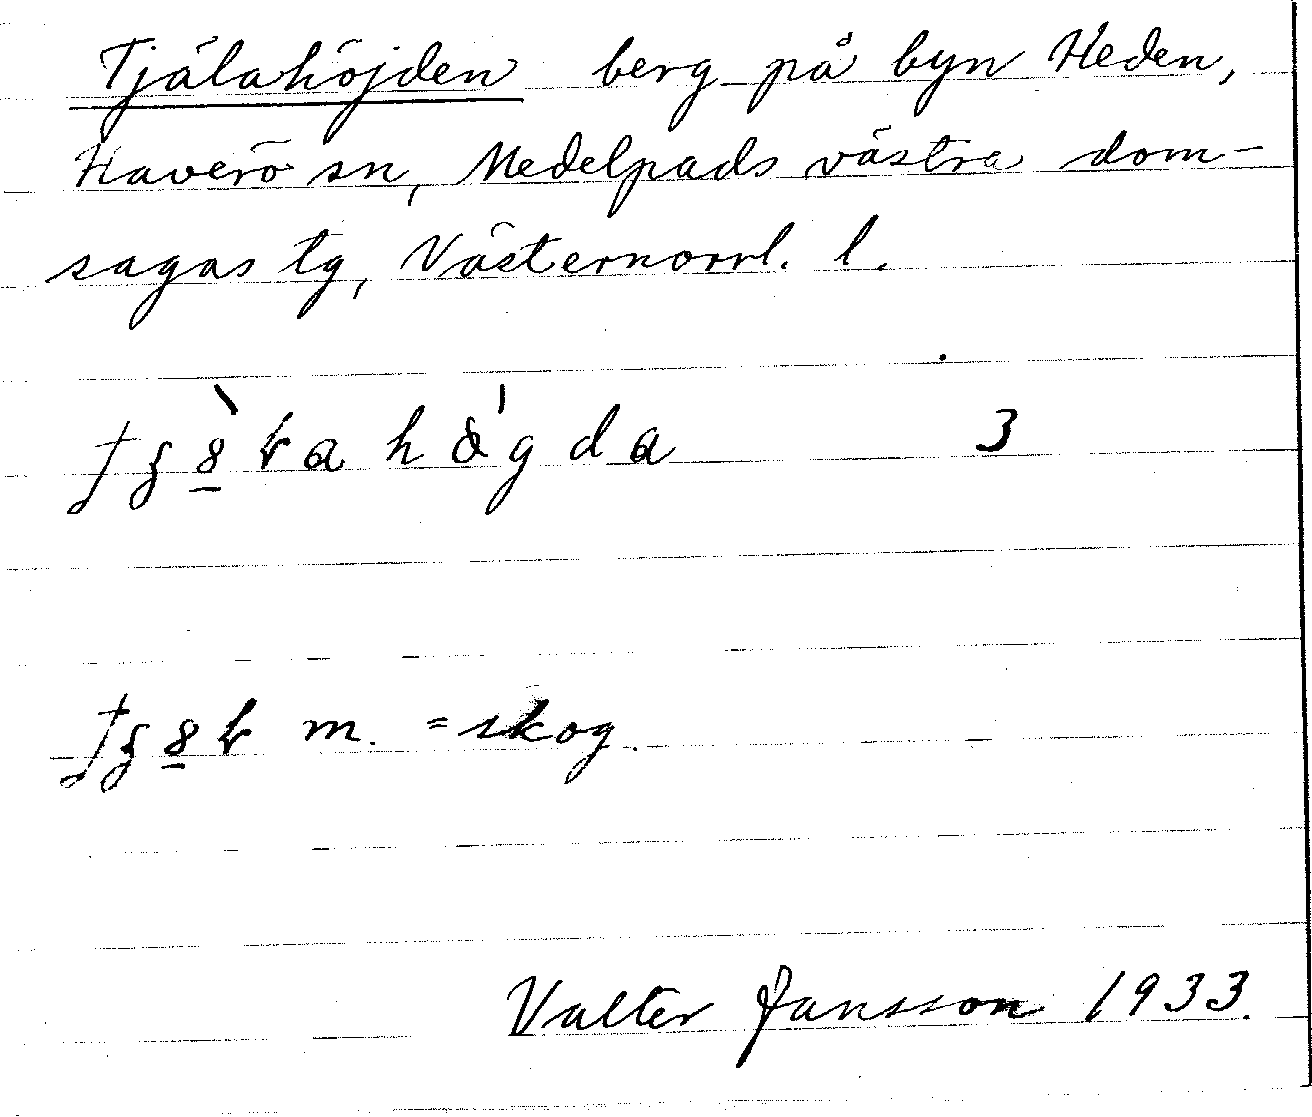 Tjälahöjden berg på byn Heden,
Haverö sn, Medelpads västra dom-
sagas tg, Västernorrl. l.
3
m. = skog.
Valter Jansson 1933.